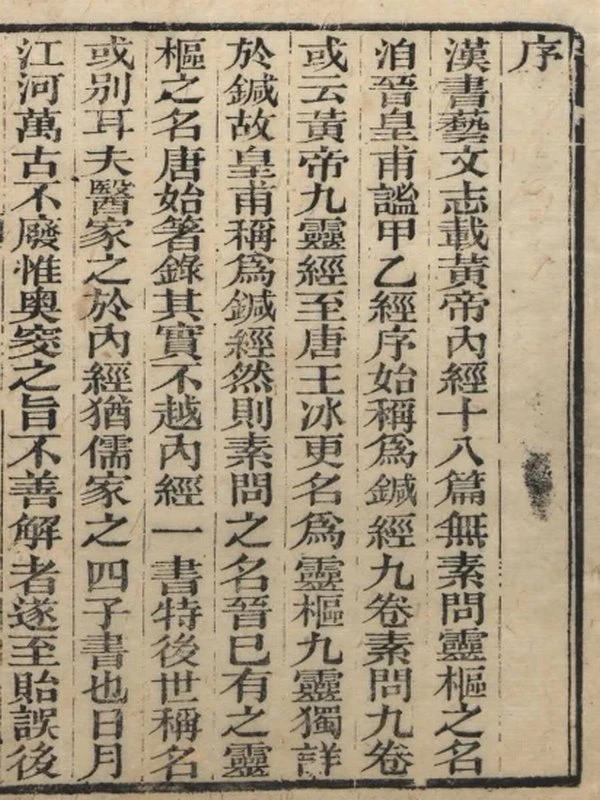 序
漢書藝文志載黃帝內經十八篇無素問靈樞之名
洎晉皇甫謐甲乙經序始稱爲鍼經九卷素問九卷
或云黃帝九靈經至唐王冰更名爲靈樞九靈獨詳
於鍼故皇甫稱爲鍼經然則素問之名晉已有之靈
樞之名唐始箸錄其實不越內經一書特後世稱名
或別耳夫醫家之於內經猶儒家之四子書也日月
江河萬古不廢惟奧窔之旨不善解者遂至貽誤後